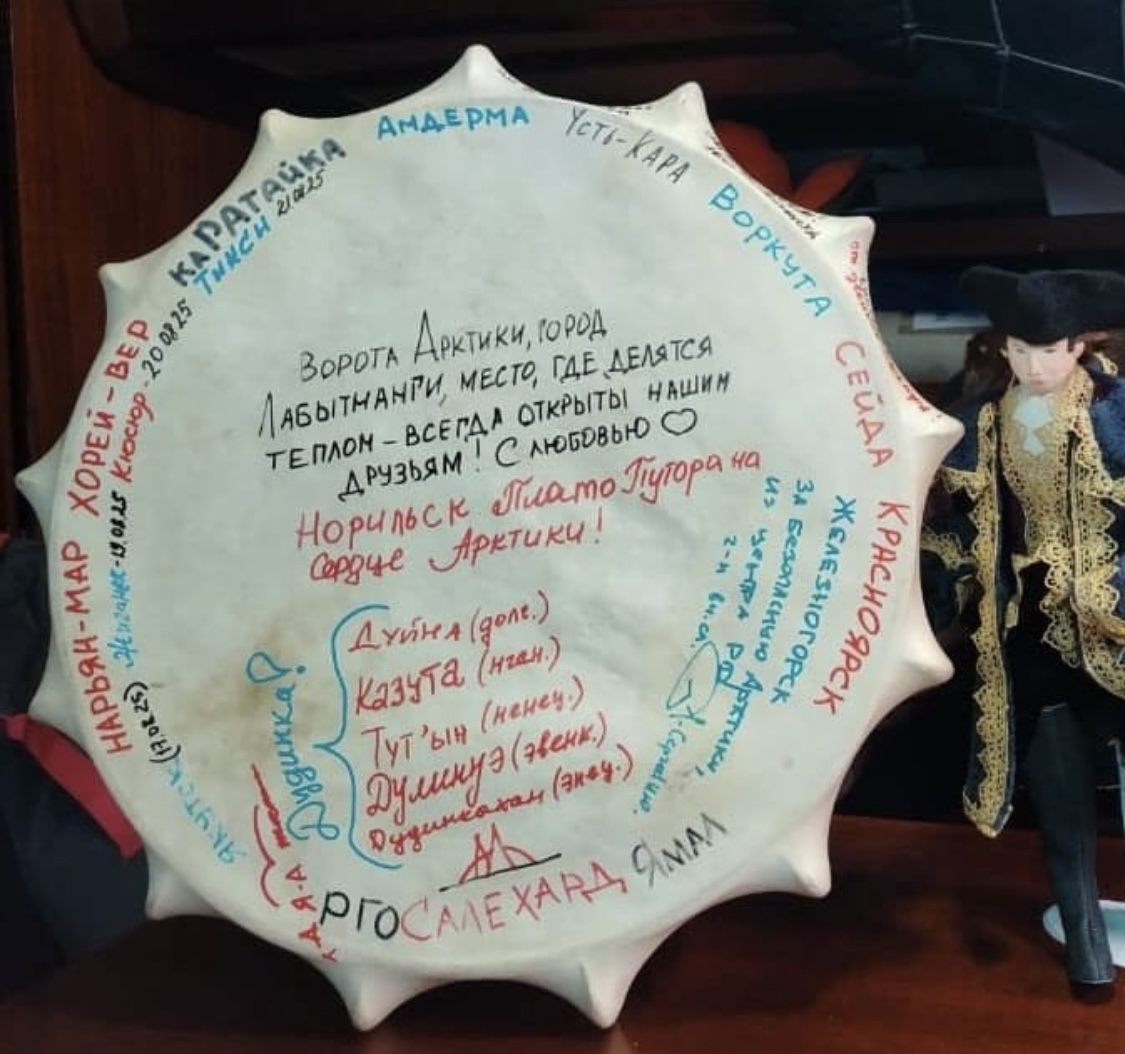 АМДЕРМА
Усть-КАРА
ВОРКУТА
СЕЙДА
КРАСНОЯРСК
КАРАТАЙКА
ТИКСИ 21.08.25
ХОРЕЙ-ВЕР
Кюсюр-20.08.25
НАРЬЯН-МАР
Жиганск-19.08.25
ЯКУТСК (17.08.25)
ВОРОТА АРКТИКИ, ГОРОД
ЛАБЫТНАНГИ, МЕСТО, ГДЕ ДЕЛЯТСЯ
ТЕПЛОМ – ВСЕГДА ОТКРЫТЫ НАШИМ
ДРУЗЬЯМ! С ЛЮБОВЬЮ ♡
Норильск Плато Путорана
Сердце Арктики!
ЖЕЛЕЗНОГОРСК
ЗА БЕЗОПАСНУЮ Арктику,
из центра
Дудинка?
Дуйна (долг.)
Казута (нган.)
Тут'ын (ненец.)
Дулинуэ (эвенк.)
Дудинкахан (энец.)
РГО
САЛЕХАРД
ЯМАЛ